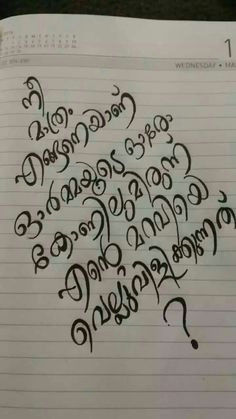 1
WEDNESDAY • MA
നീ
മാത്രം
എങ്ങനെയാണ്
ഓർമ്മയുടെ ഓരോ
കോണിലുമിരുന്ന്
എന്റെ മറവിയെ
വെല്ലുവിളിക്കുന്നത്
?